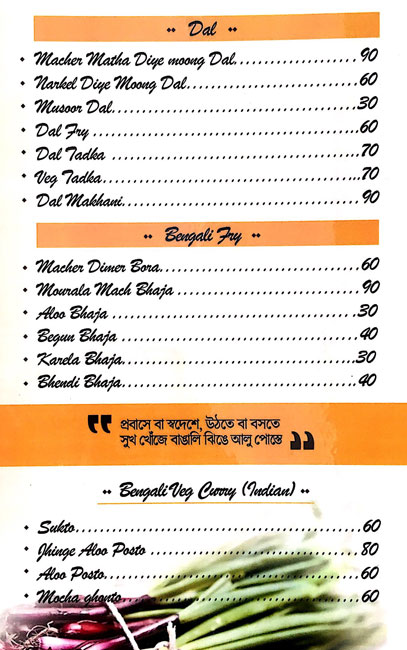 Dal
Macher Matha Diye moong Dal 90
Narkel Diye Moong Dal 60
Musoor Dal 30
Dal Fry 60
Dal Tadka 70
Veg Tadka 70
Dal Makhani 90
Bengali Fry
Macher Dimer Bora 60
Mourala Mach Bhaja 90
Aloo Bhaja 30
Begun Bhaja 40
Karela Bhaja 30
Bhendi Bhaja 40
❝ প্রবাসে বা স্বদেশে, উঠতে বা বসতে
সুখ খোঁজে বাঙালি ঝিঙে আলু পোস্তে ❞
Bengali Veg Curry (Indian)
Sukto 60
Jhinge Aloo Posto 80
Aloo Posto 60
Mocha ghonto 60